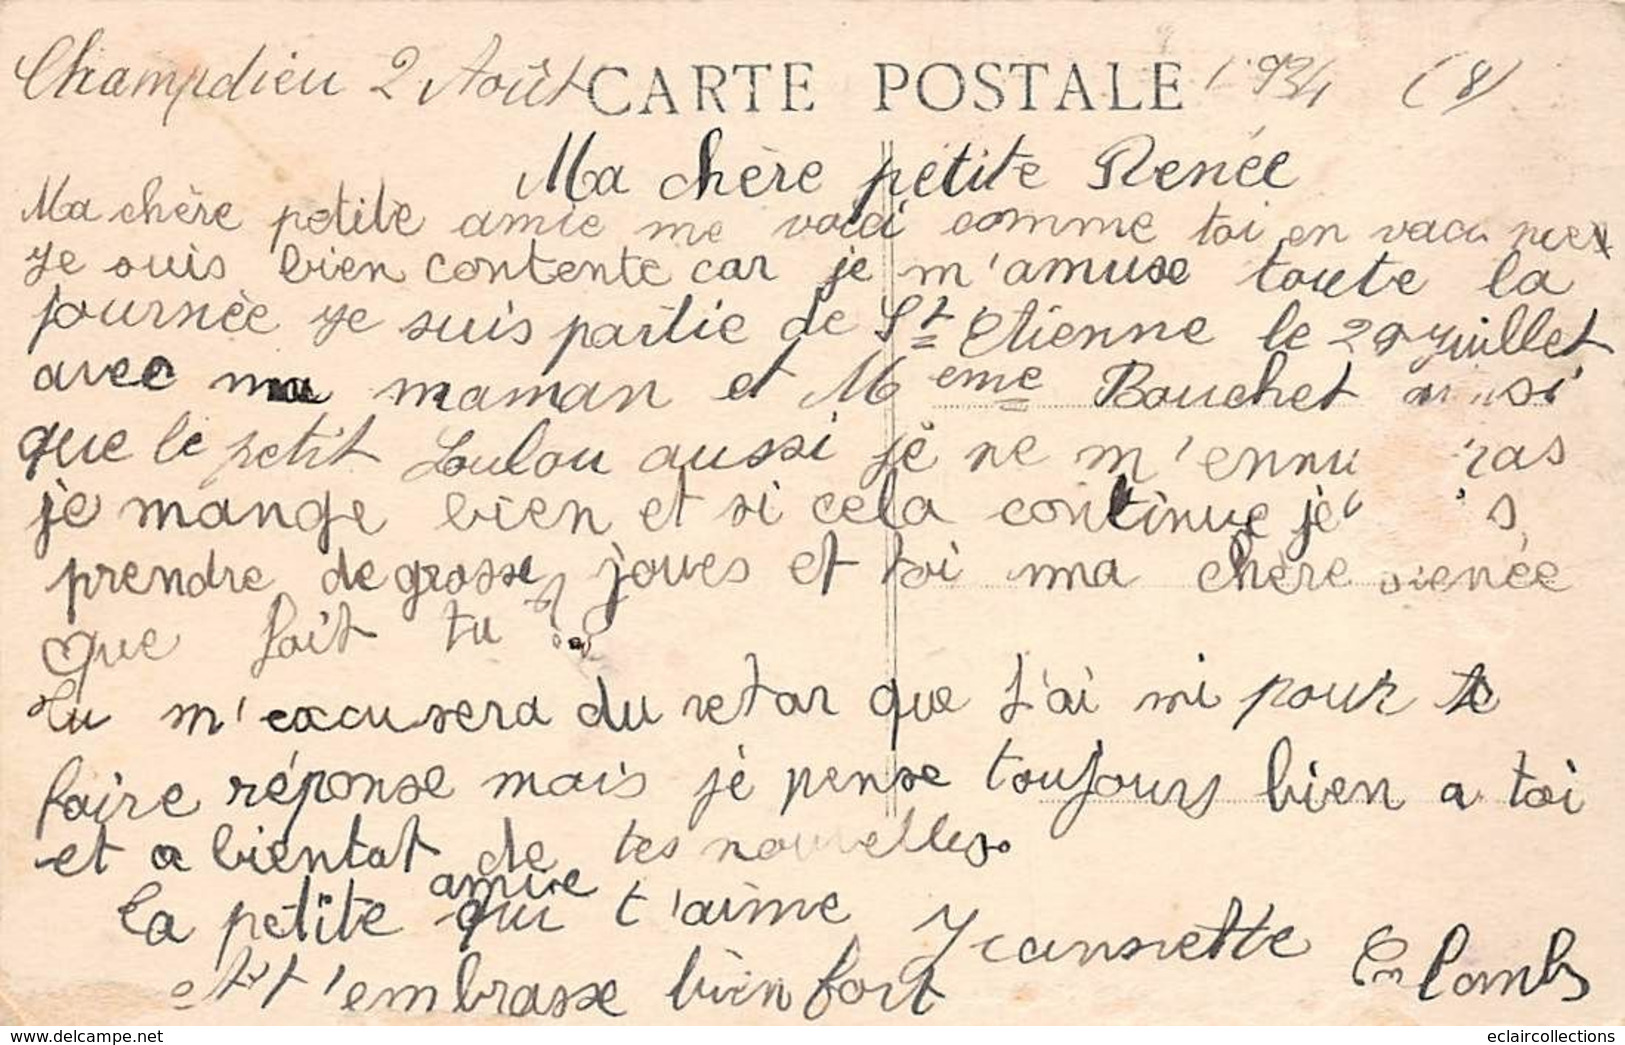 Champdieu 2 Août CARTE POSTALE 1934 (8)
Ma chère petite Renée
Ma chère petite amie me voici comme toi en vacances
je suis bien contente car je m'amuse toute la
journée je suis partie de St Etienne le 29 Juillet
avec ma maman et Meme Bouchet ainsi
que le petit Loulou aussi je ne m'ennui pas
je mange bien et si cela continue je
prendre de grosse joues et toi ma chère renée
que fait tu ?
Tu m'excusera du retar que j'ai mi pour te
faire réponse mais je pense toujours bien a toi
et a bientot de tes nouvelles.
amie
La petite qui t'aime Jeannette
et t'embrasse bien fort
www.delcampe.net eclaircollections